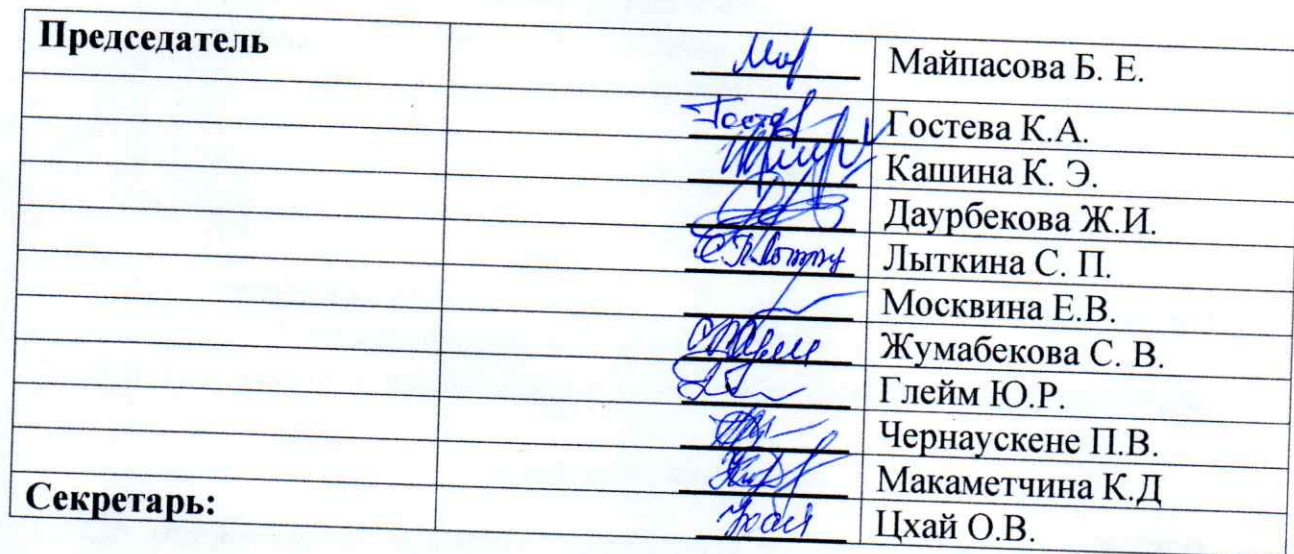 Председатель Майпасова Б. Е.
Гостева К.А.
Кашина К. Э.
Даурбекова Ж.И.
Лыткина С. П.
Москвина Е.В.
Жумабекова С. В.
Глейм Ю.Р.
Чернаускене П.В.
Макаметчина К.Д
Секретарь: Цхай О.В.